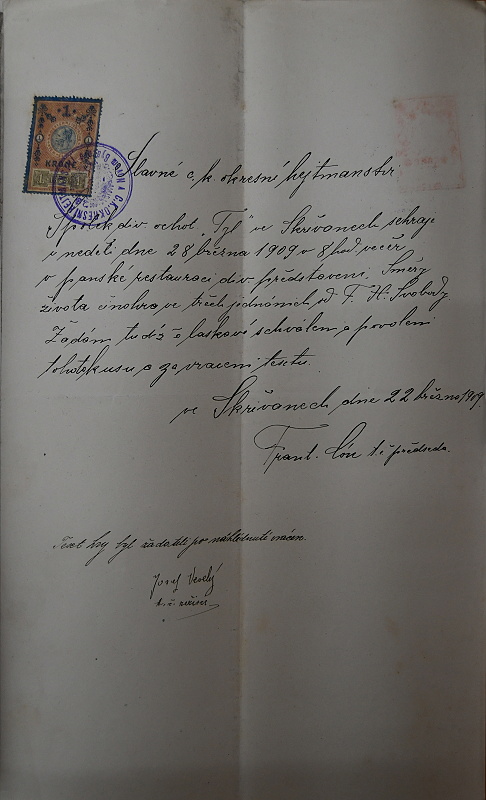 1
KRONE
Slavné c. k. okresní hejtmanství
Spolek div. ochot. "Tyl" ve Skřivanech sehraje
v neděli dne 28 března 1909 v 8 hod večer
v panské restauraci div. představení. Směry
života činohra ve třech jednáních od F. H. Svobody.
Žádám tudíž o laskavé schválení a povolení
tohoto kusu a za vrácení textu.
ve Skřivanech dne 22 března 1909.
Frant. t. č. předseda.
Text hry byl žadateli po nahlédnutí vrácen.
Josef Veselý
t. č.